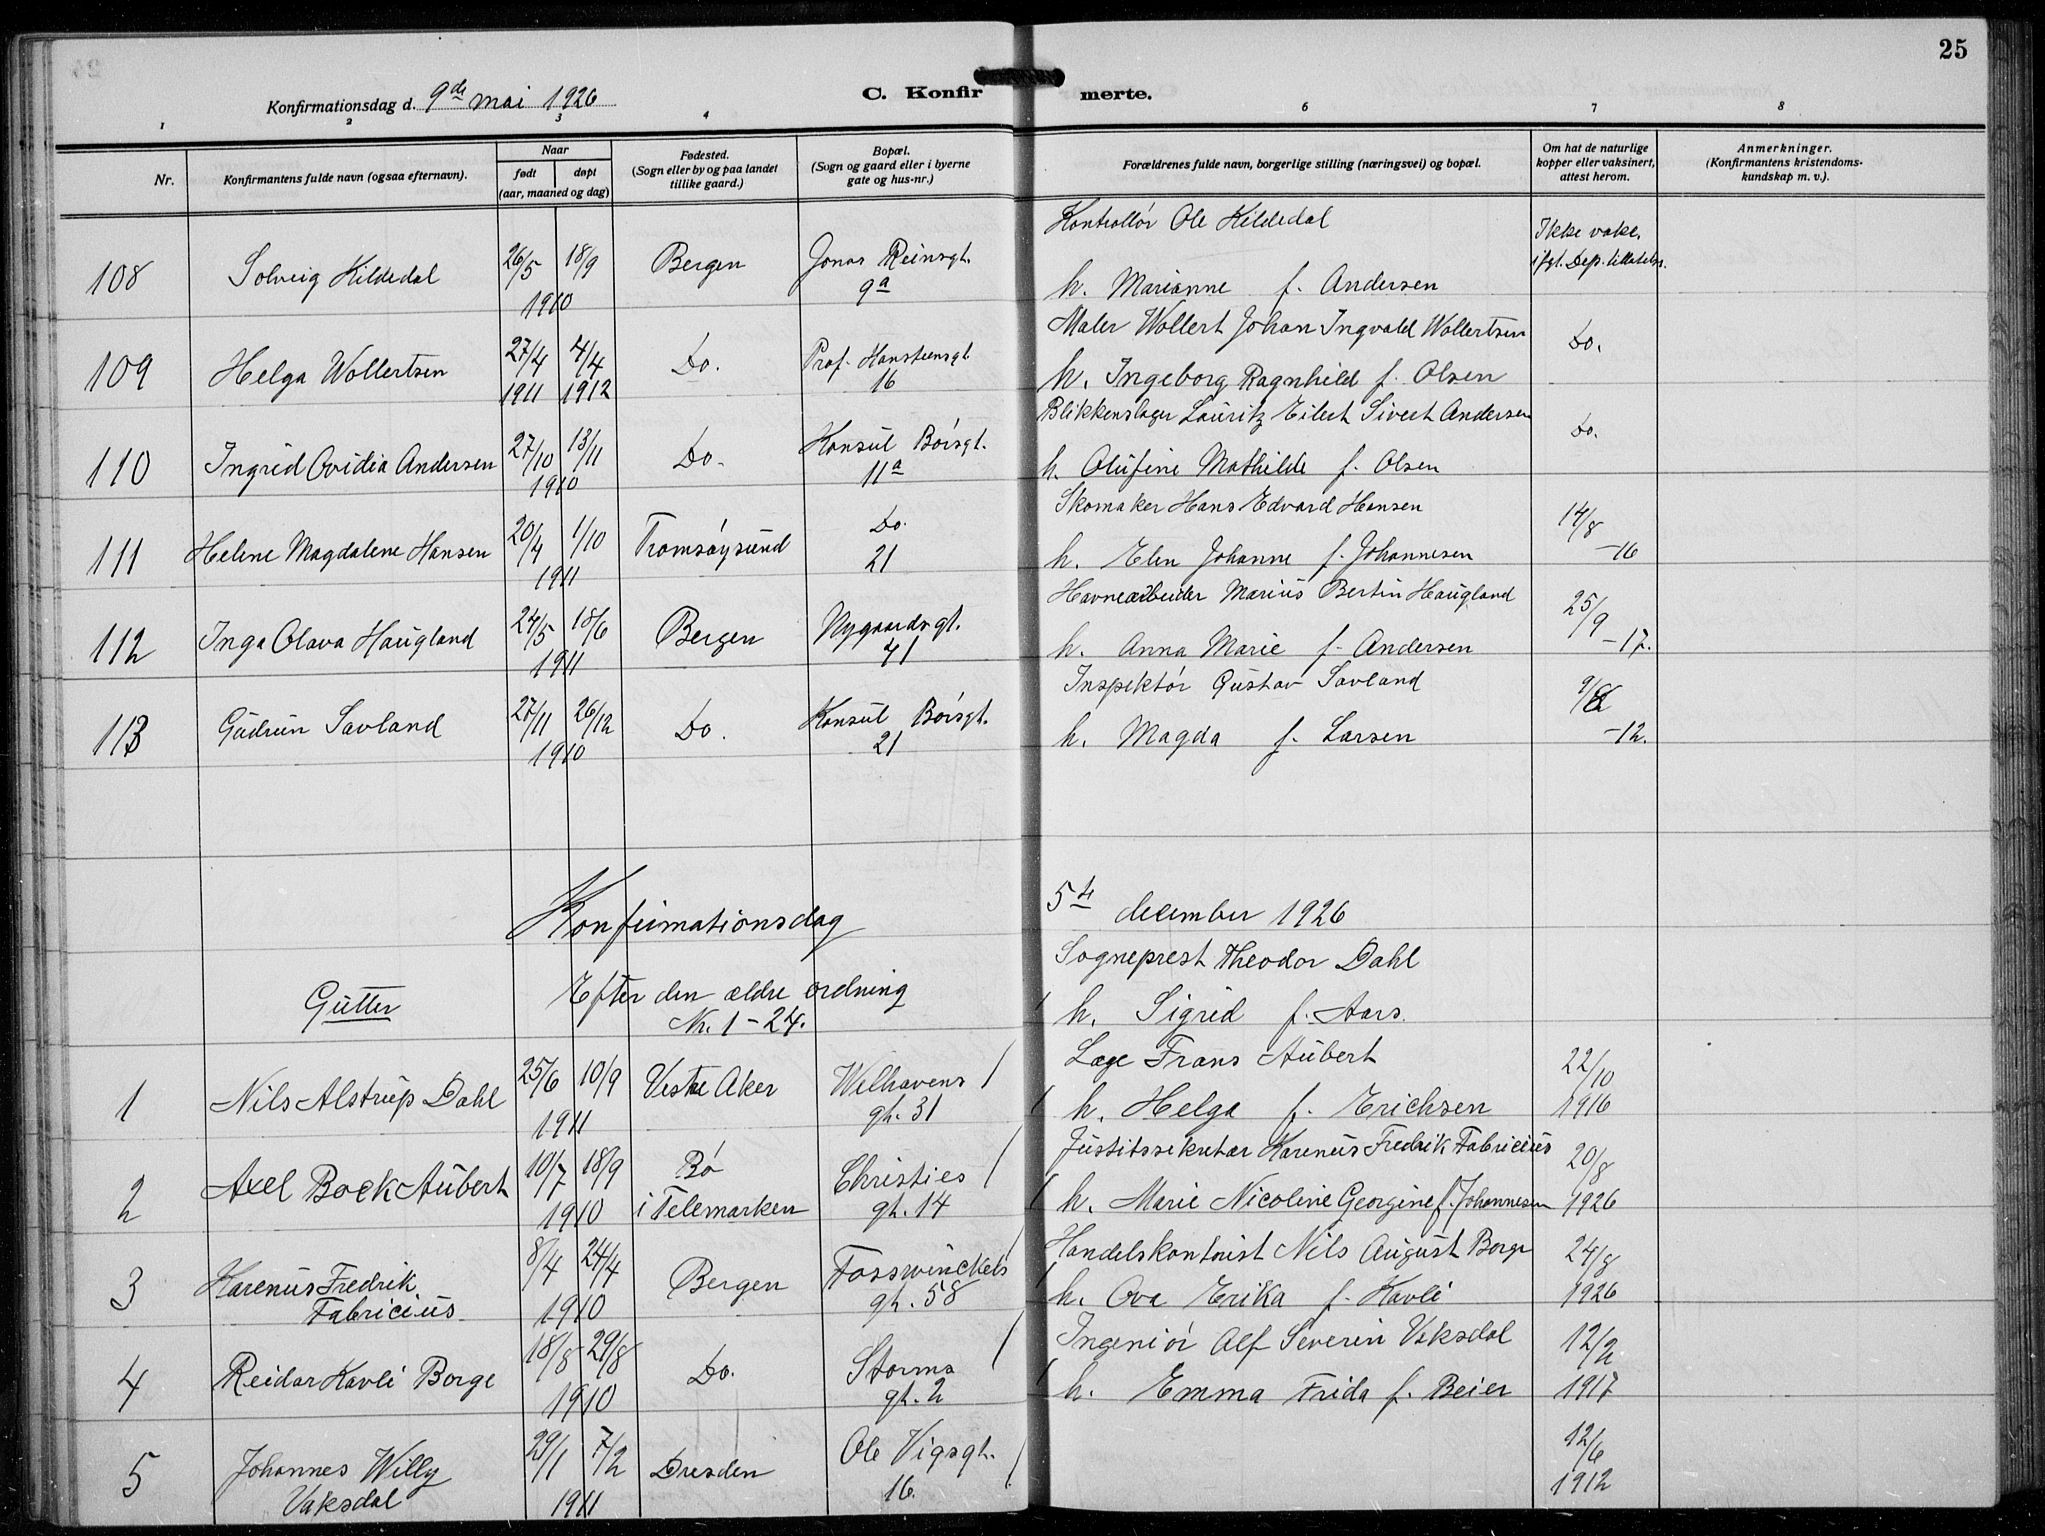 25
Konfirmationsdag d. 9de mai 1926
C. Konfir merte.
1 2 3 4 6 7 8
Nr.
Konfirmantens fulde navn (ogsaa efternavn).
Naar
født døpt
(aar, maaned og dag)
Fødested.
(Sogn eller by og paa landet
tillike gaard.)
Bopæl.
(Sogn og gaard eller i byerne
gate og hus-nr.)
Forældrenes fulde navn, borgerlige stilling (næringsvei) og bopæl.
Om hat de naturlige
kopper eller vaksinert,
attest herom.
Anmerkninger.
(Konfirmantens kristendoms-
kundskap m. v.).
Kontrollør Ole Kildedal
108 Solveig Kildedal 26/5 18/9 Bergen Jonas Reinsgt. Ikke vakc.
1910 9a h. Marianne f. Andersen ifgl. Dep. tillatelse.
Maler Wollert Johan Ingvald Wollertsen
109 Helga Wollertsen 27/4 4/4 Do. Prof. Hansteensgt. Do.
1911 1912 16 h. Ingeborg Ragnhild f. Olsen
Blikkenslager Lauritz Eilert Sivert Andersen
110 Ingrid Ovidia Andersen 27/10 13/11 Do. Konsul Børsgt. Do.
1910 11a h. Olufine Mathilde f. Olsen
Skomaker Hans Edvard Hansen
111 Helene Magdalene Hansen 20/4 1/10 Tromsøysund Do. 14/8
1911 21 h. Elen Johanne f. Johannesen -16
Havnearbeider Marius Bertin Haugland
112 Inga Olava Haugland 24/5 18/6 Bergen Nygaardsgt. 25/9
1911 41 h. Anna Marie f. Andersen -17.
Inspektør Gustav Savland
113 Gudrun Savland 27/11 26/12 Do. Konsul Børsgt.
1910 21 h. Magda f. Larsen -12.
Konfirmationsdag 5te december 1926
Sogneprest Theodor Dahl
Gutter Efter den ældre ordning
Nr. 1-24. h. Sigrid f. Aars.
Læge Frans Aubert
1 Nils Alstrup Dahl 25/6 10/9 Vestre Aker Welhavens 22/10
1911 gt. 31 h. Helga f. Erichsen 1916
Justitssekretær Karenus Fredrik Fabricius
2 Axel Boek Aubert 10/7 18/9 Bø Christies 20/8
1910 i Telemarken gt. 14 h. Marie Nicoline Georgine f. Johannesen 1926
Handelskontorist Nils August Borge
3 Karenus Fredrik 8/4 24/4 Bergen Fosswinckels 24/8
Fabricius 1910 gt. 58 h. Ova Erika f. Kavli 1926
Ingeniør Alf Severin Vaksdal
4 Reidar Kavli Borge 18/8 29/8 Do. Storms 12/2
1910 gt. 2 h. Emma Frida f. Beier 1917
5 Johannes Willy 29/1 7/2 Dresden Ole Vigsgt. 12/6
Vaksdal 1911 16. 1912